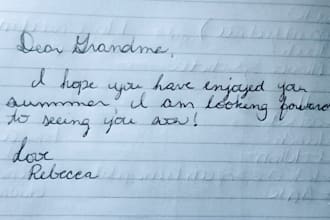 Dear Grandma,
I hope you have enjoyed your
summer, I am looking forward
to seeing you soon!
Love
Rebecca